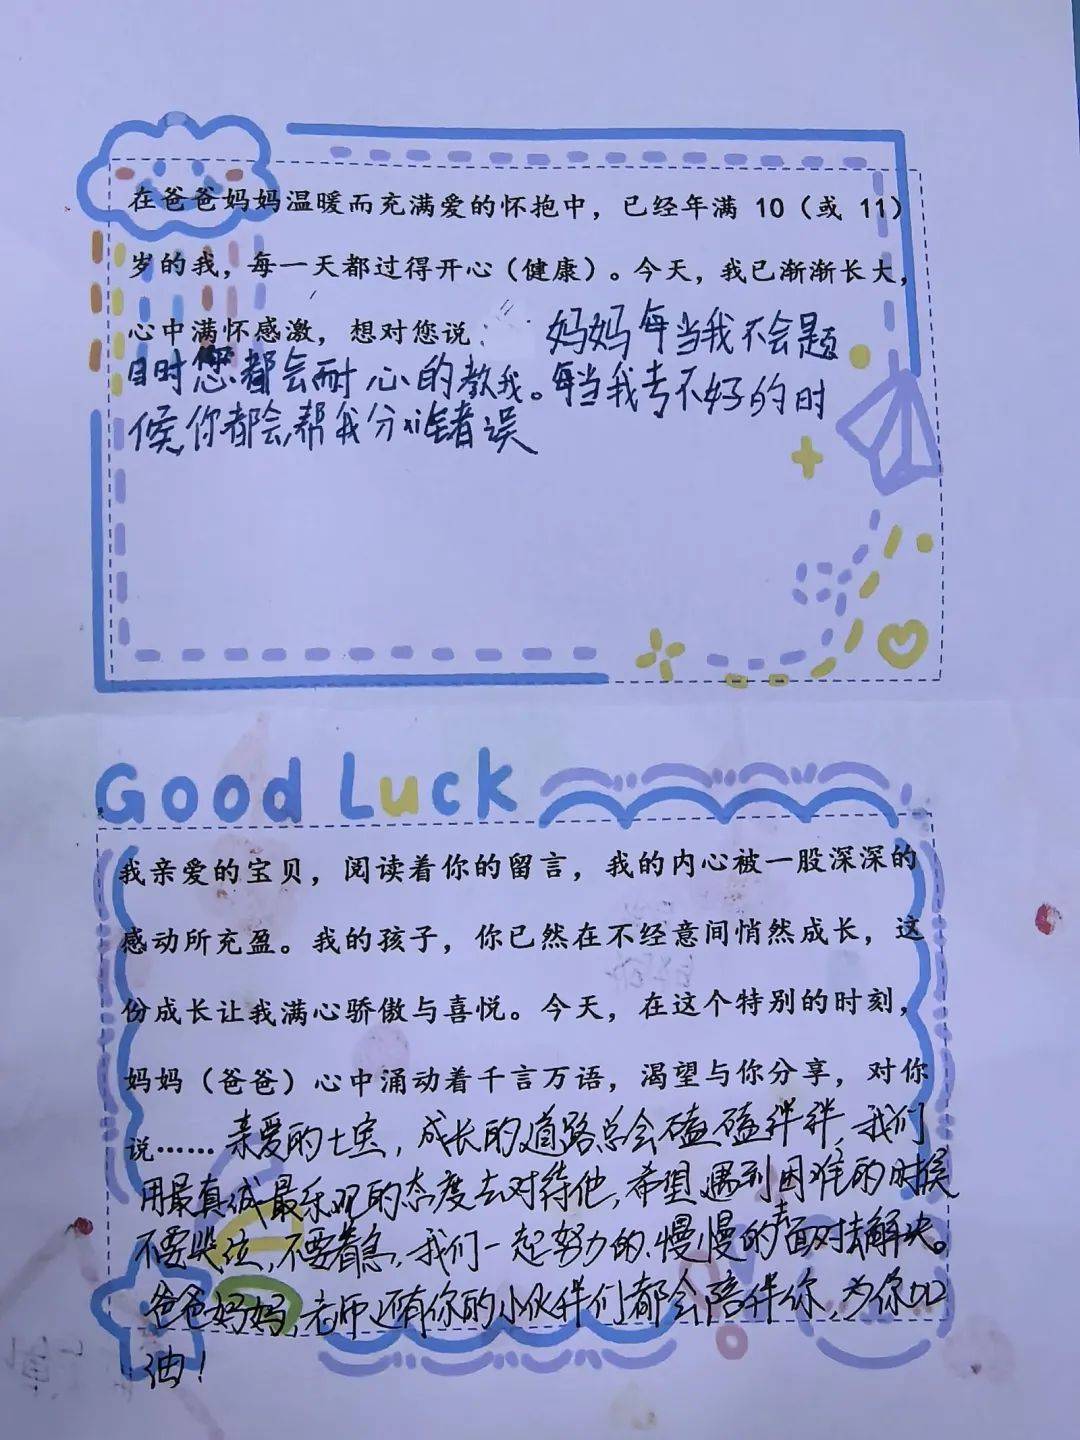 在爸爸妈妈温暖而充满爱的怀抱中，已经年满 10（或 11）
岁的我，每一天都过得开心（健康）。今天，我已渐渐长大，
心中满怀感激，想对您说：妈妈每当我不会题
目时您都会耐心的教我。每当我考不好的时
候，你都会帮我分 错误
Good Luck
我亲爱的宝贝，阅读着你的留言，我的内心被一股深深的
感动所充盈。我的孩子，你已然在不经意间悄然成长，这
份成长让我满心骄傲与喜悦。今天，在这个特别的时刻，
妈妈（爸爸）心中涌动着千言万语，渴望与你分享，对你
说……亲爱的七宝，成长的道路总会磕磕绊绊，我们
用最真诚最乐观的态度去对待他，希望遇到困难的时候
不要哭泣，不要着急，我们一起努力的、慢慢的去面对去解决。
爸爸妈妈，老师还有你的小伙伴们都会陪伴你，为你加
油！